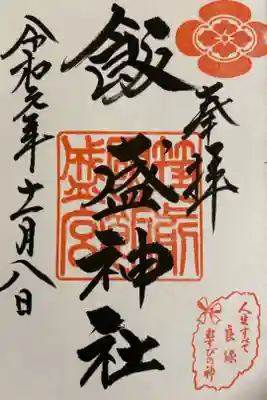 奉拝
飯盛神社
令和元年十一月八日
人生すべて
良縁
むすびの神